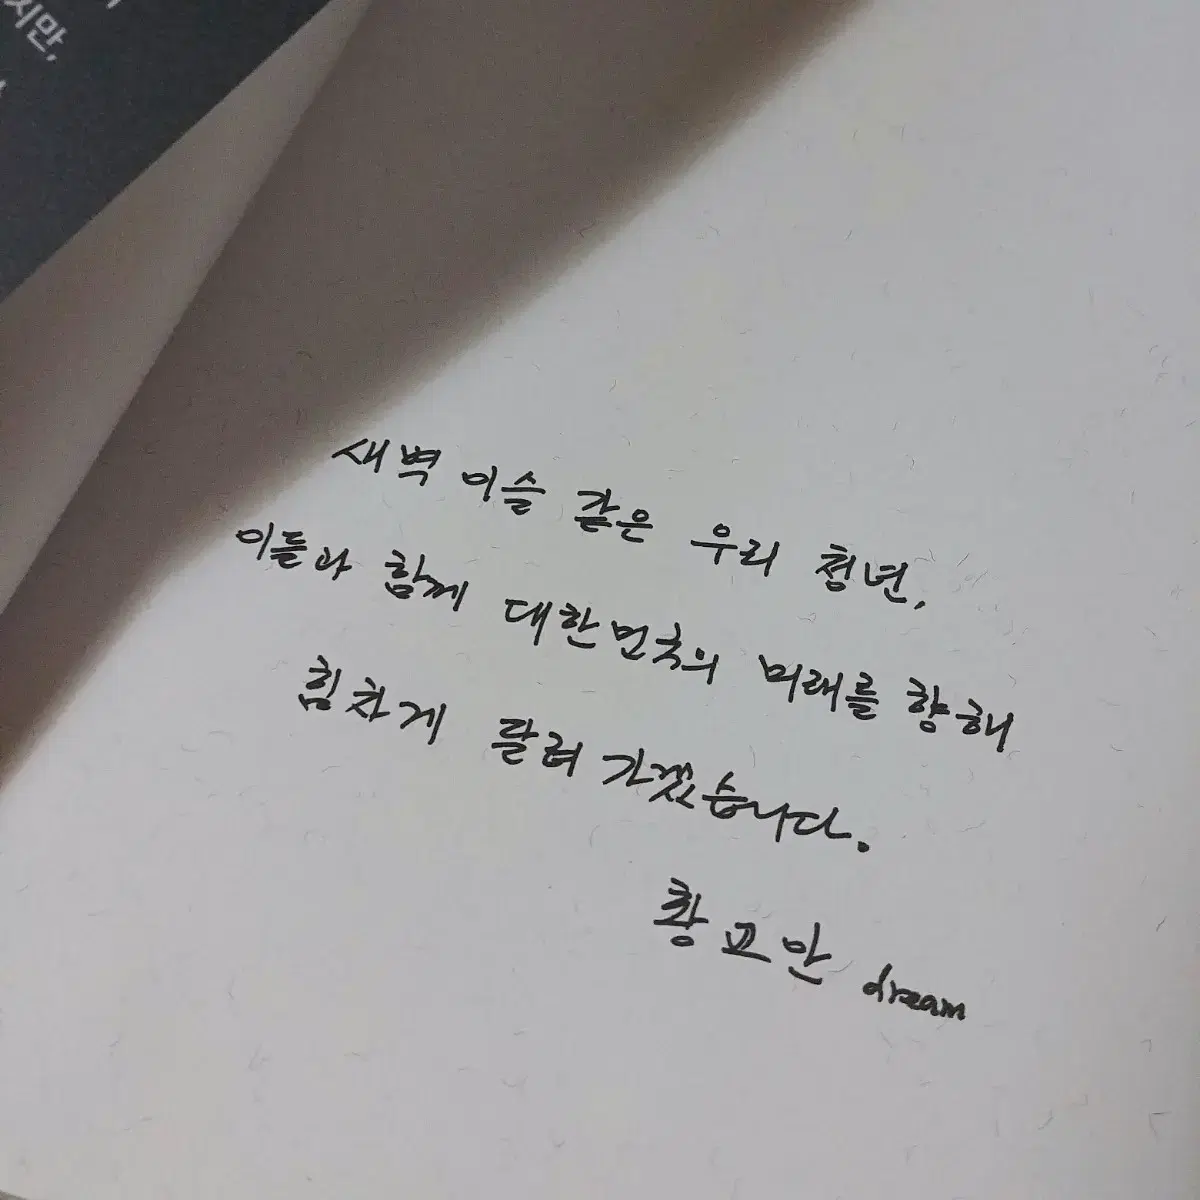 지만,
새벽 이슬 같은 우리 청년,
이들과 함께 대한민국의 미래를 향해
힘차게 달려 가겠습니다.
황교안 dream